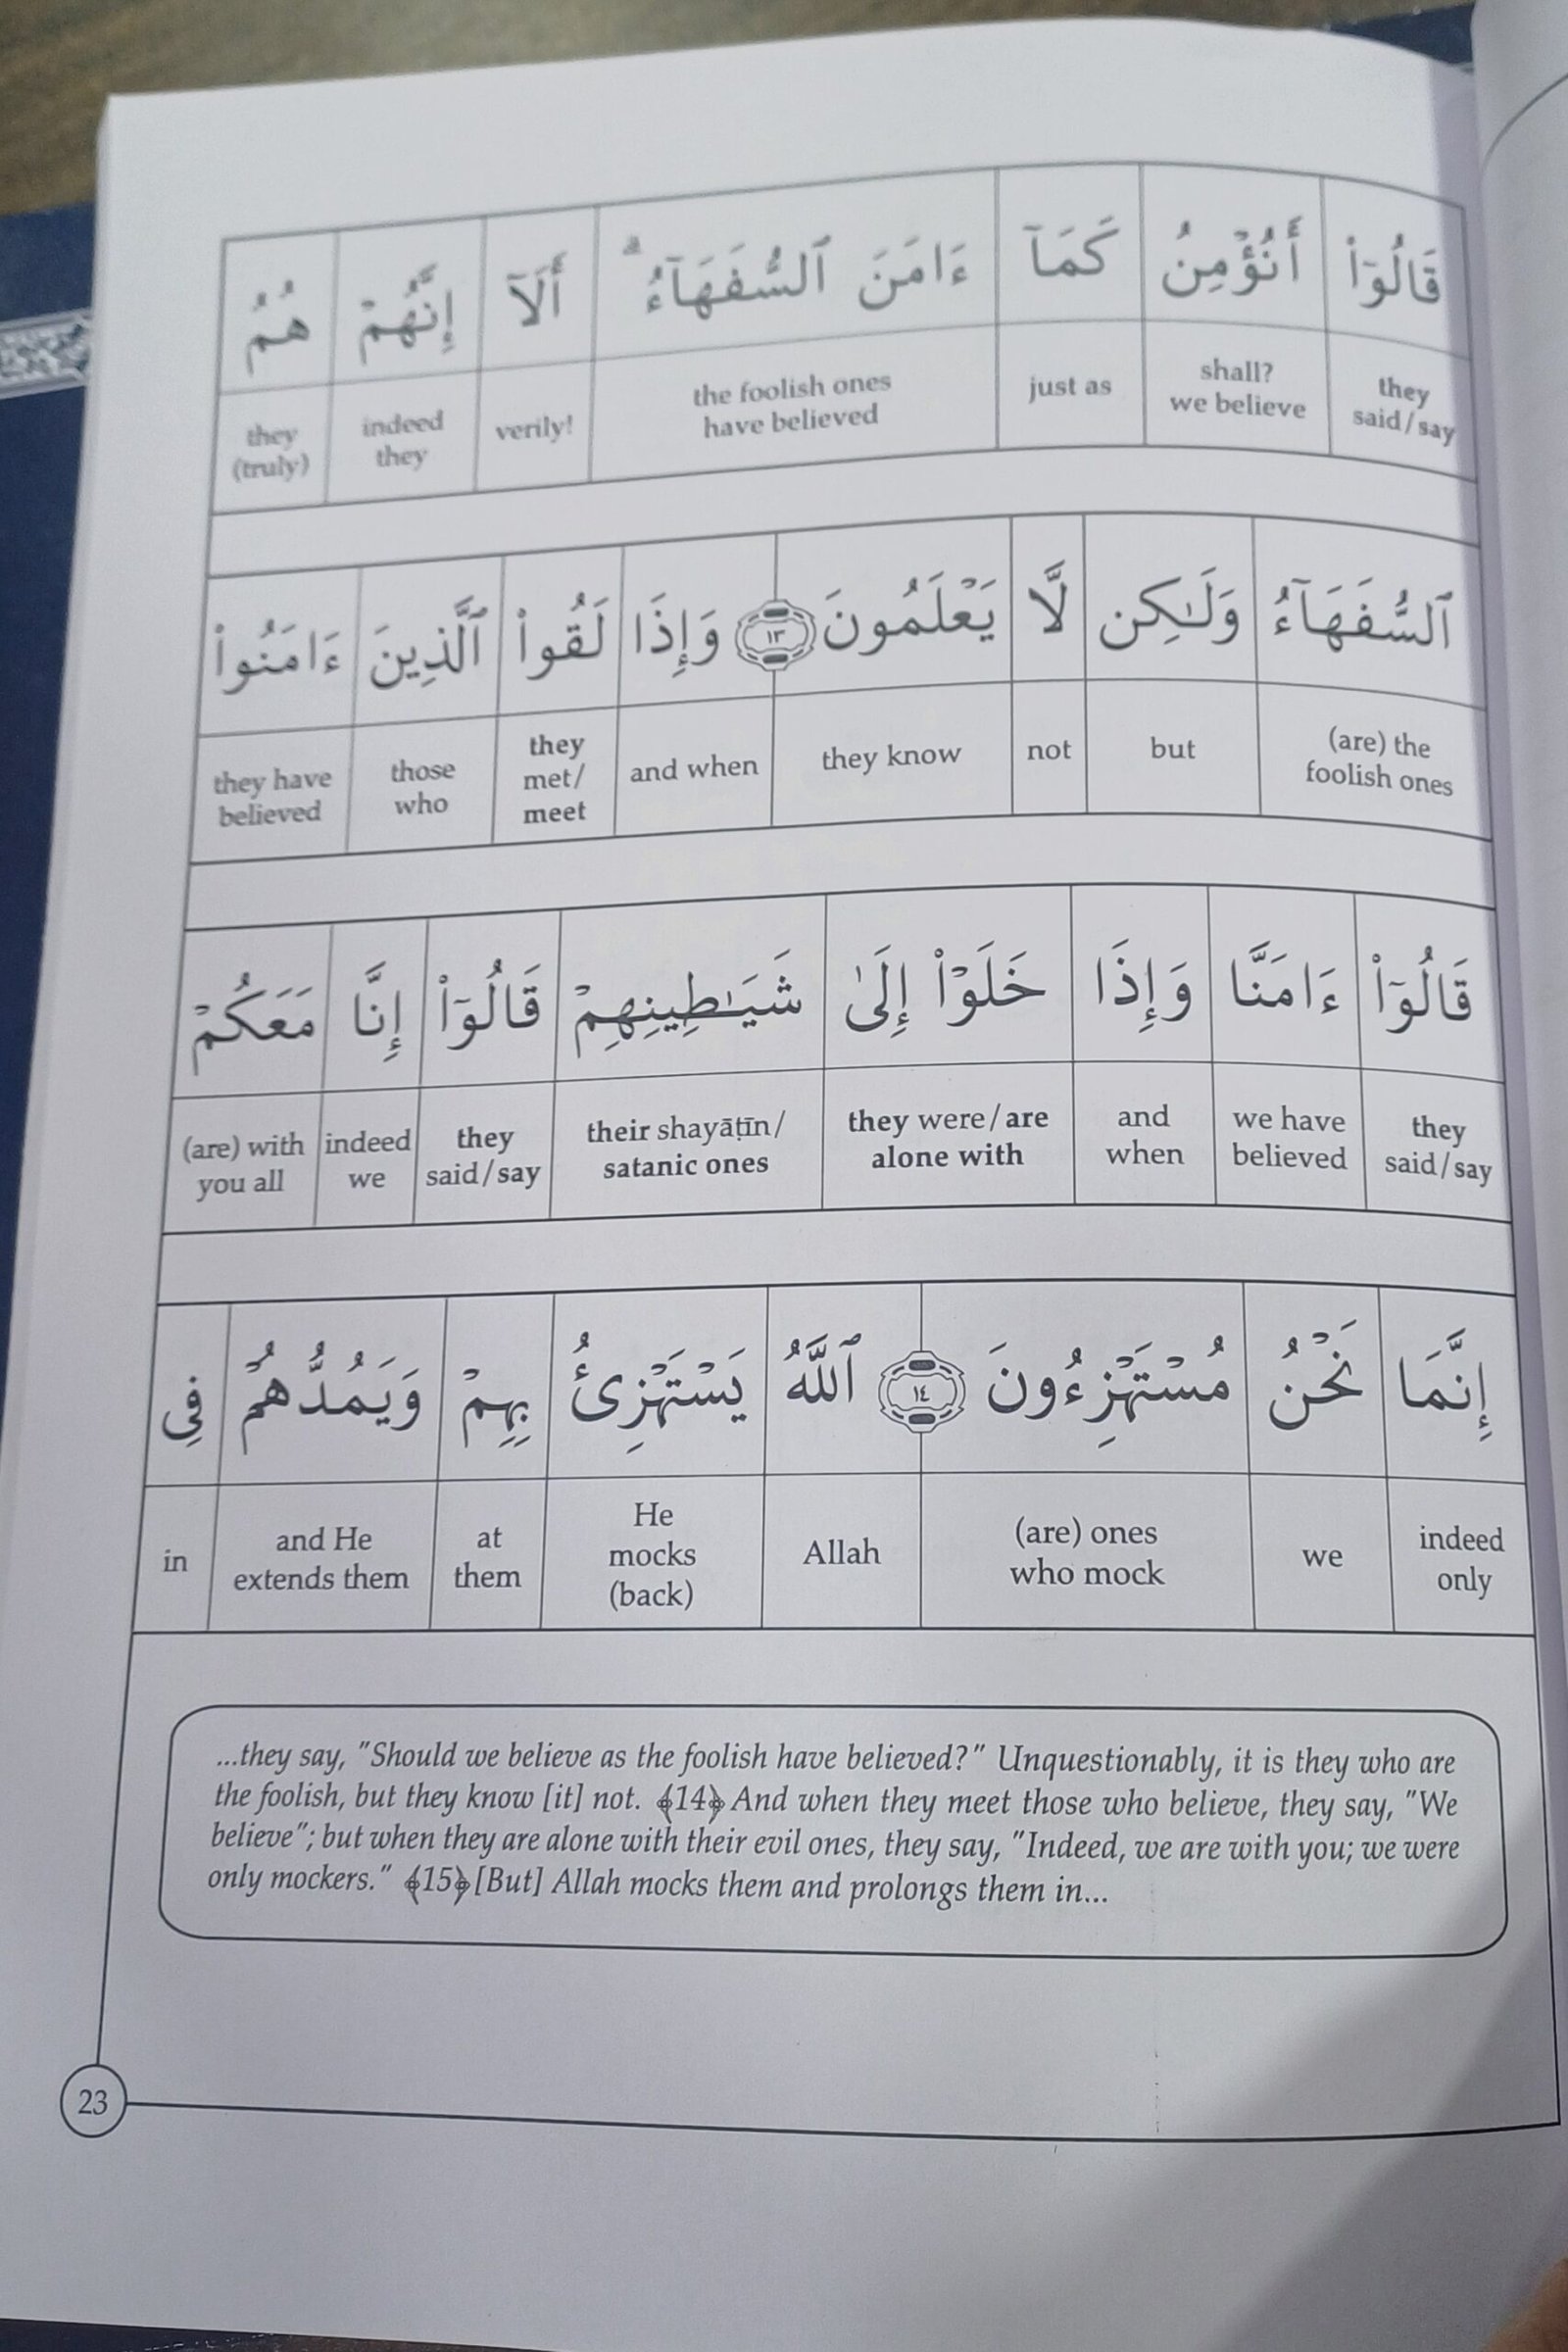 قَالُوٓا۟ أَنُؤْمِنُ كَمَآ ءَامَنَ ٱلسُّفَهَآءُ ۗ أَلَآ إِنَّهُمْ هُمُ
they said/say shall? we believe just as the foolish ones have believed verily! indeed they they (truly)
ٱلسُّفَهَآءُ وَلَـٰكِن لَّا يَعْلَمُونَ ١٣ وَإِذَا لَقُوا۟ ٱلَّذِينَ ءَامَنُوا۟
(are) the foolish ones but not they know and when they met/ meet those who they have believed
قَالُوٓا۟ ءَامَنَّا وَإِذَا خَلَوْا۟ إِلَىٰ شَيَـٰطِينِهِمْ قَالُوٓا۟ إِنَّا مَعَكُمْ
they said/say we have believed and when they were/are alone with their shayāṭīn/ satanic ones they said/say indeed we (are) with you all
إِنَّمَا نَحْنُ مُسْتَهْزِءُونَ ١٤ ٱللَّهُ يَسْتَهْزِئُ بِهِمْ وَيَمُدُّهُمْ فِى
indeed only we (are) ones who mock Allah He mocks (back) at them and He extends them in
...they say, "Should we believe as the foolish have believed?" Unquestionably, it is they who are
the foolish, but they know [it] not. ﴾14﴿ And when they meet those who believe, they say, "We
believe"; but when they are alone with their evil ones, they say, "Indeed, we are with you; we were
only mockers." ﴾15﴿ [But] Allah mocks them and prolongs them in...
23